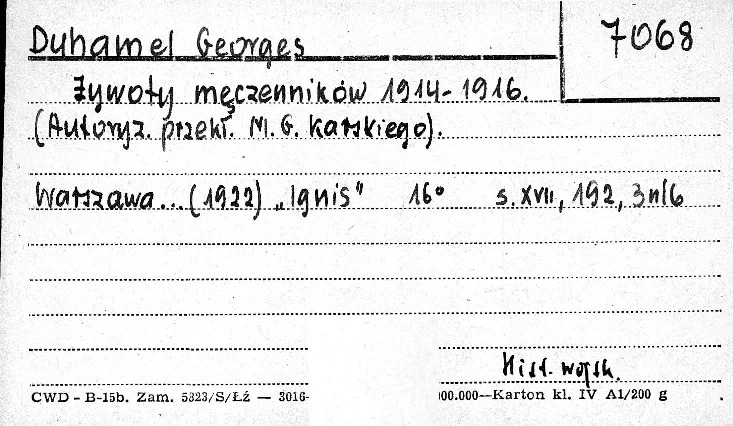 Duhamel Georges
7068
Żywoty męczenników 1914-1916.
(Autoryz. przekł. M. G. Karskiego).
Warszawa... (1922) „Ignis" 16° s. XVII, 192, 3nl6
Hist. wojsk.
CWD - B-15b. Zam. 5323/S/Łź — 3016- 00.000—Karton kl. IV A1/200 g